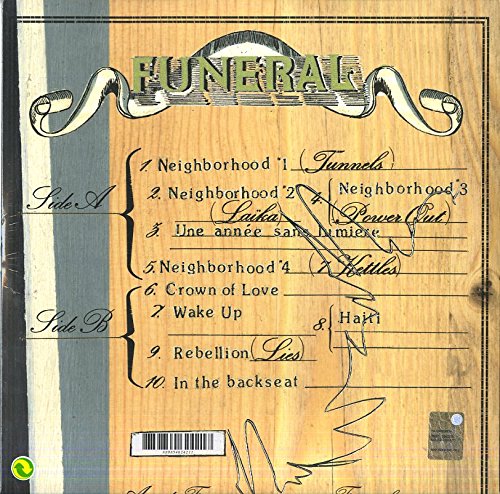 FUNERAL
Side A
1. Neighborhood #1 (Tunnels)
2. Neighborhood #2 (Laika)
3. Une année sans lumiere
4. Neighborhood #3 (Power Out)
5. Neighborhood #4 (7 Kettles)
Side B
6. Crown of Love
7. Wake Up
8. Haiti
9. Rebellion (Lies)
10. In the backseat